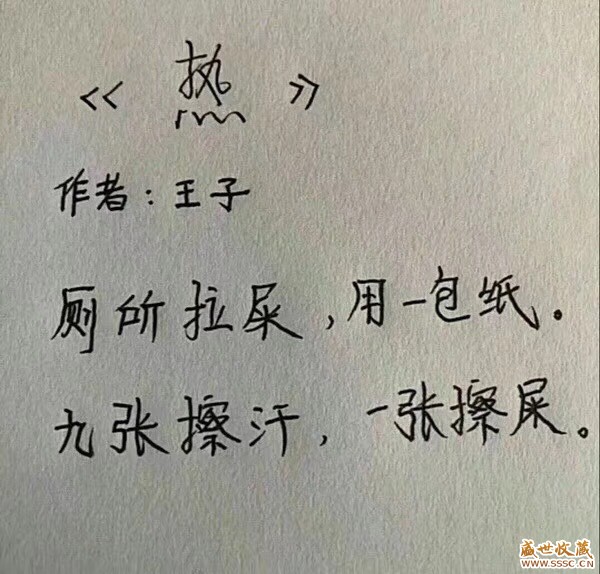 《热》
作者：王子
厕所拉屎，用一包纸。
九张擦汗，一张擦屎。
盛世收藏
WWW.SSSC.CN